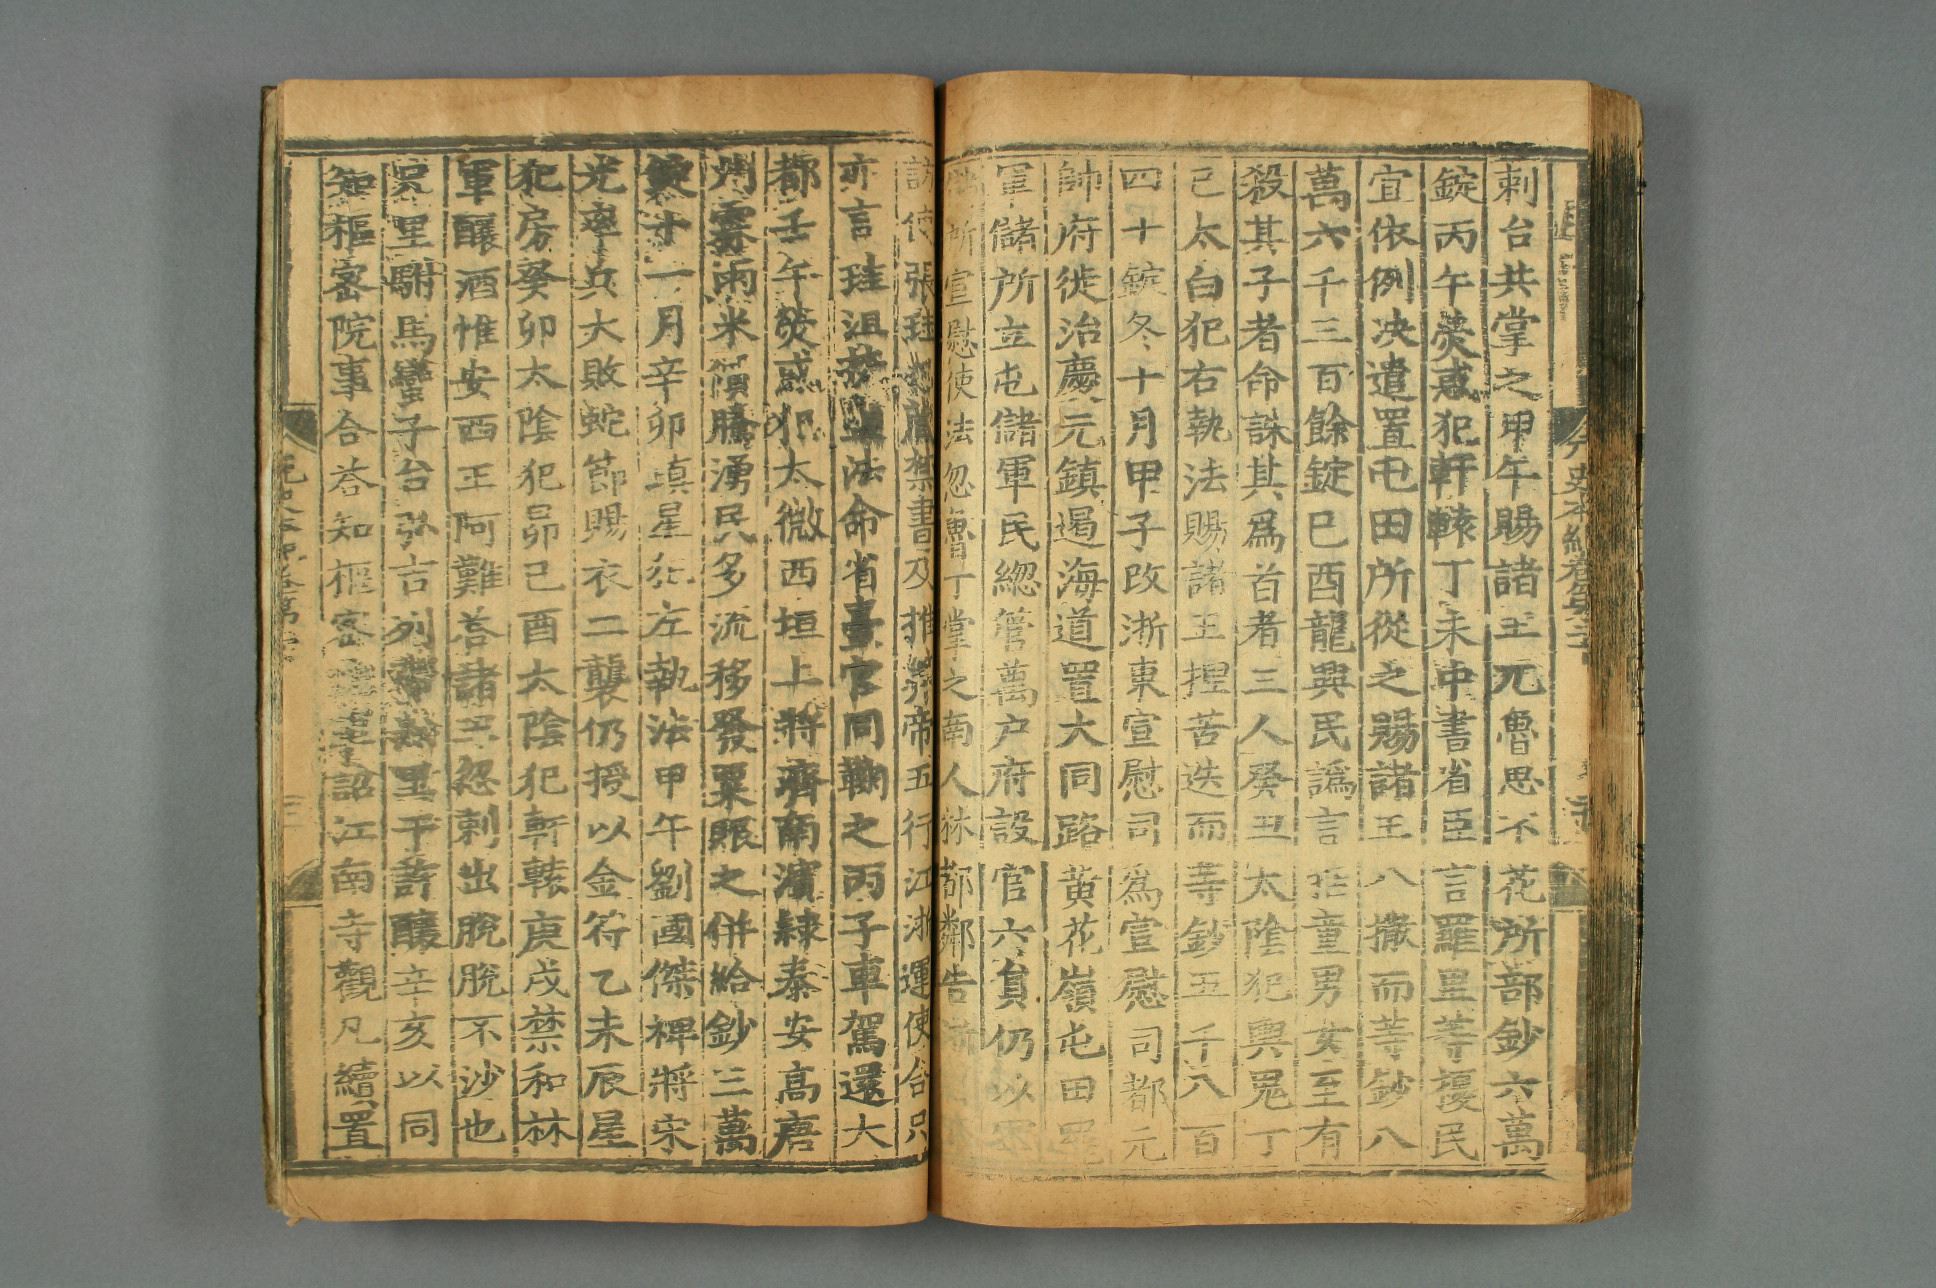 元史本紀卷第二十
刺台共掌之甲午賜諸王兀魯思不花所部鈔六萬
錠丙午熒惑犯軒轅丁未中書省臣言羅里等擾民
宜依例决遣置屯田所從之賜諸王八撒而等鈔八
萬六千三百餘錠巳酉龍興民譌言括童男女至有
殺其子者命誅其為首者三人癸丑太陰犯輿鬼丁
巳太白犯右執法賜諸王捏苦迭而等鈔五千八百
四十錠冬十月甲子改浙東宣慰司為宣慰司都元
帥府徙治慶元鎮遏海道置大同路黄花嶺屯田罷
軍儲所立屯儲軍民總管萬户府設官六員仍以軍
儲所宣慰使法忽魯丁掌之南人林都鄰告浙
使張珪藏禁書及推筭帝五行江浙運使合只
亦言珪沮法命省臺官同鞫之丙子車駕還大
都壬午熒惑犯太微西垣上將濟南濱棣泰安高唐
州霖雨米價騰湧民多流移發粟賑之併給鈔三萬
錠十一月辛卯填星犯左執法甲午劉國傑裨將宋
光率兵大敗蛇節賜衣二襲仍授以金符乙未辰星
犯房癸卯太陰犯昴己酉太陰犯軒轅庚戌禁和林
軍釀酒惟安西王阿難答諸王忽剌出脫脫不沙也
只里駙馬蠻子台弘吉列帶燕里干許釀辛亥以同
知樞密院事合荅知樞密院事詔江南寺觀凡續置
元史本紀卷第二十